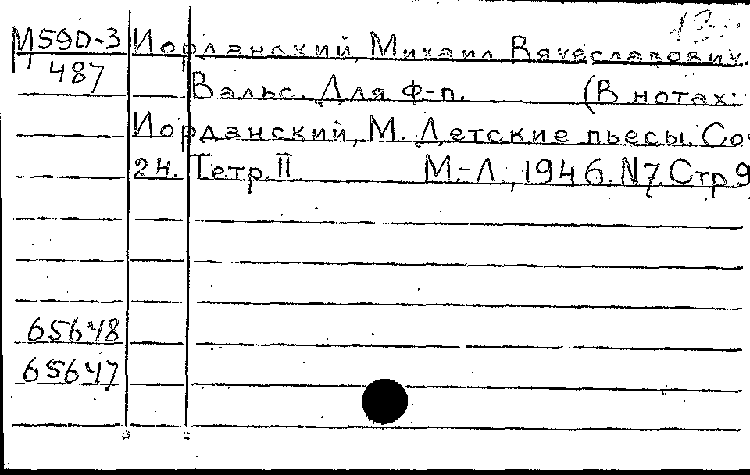 М590-3 Иорданский, Михаил Вячеславович.
487 Вальс. Для ф-п. (В нотах:
Иорданский, М. Детские пьесы. Соч
24. Тетр. II М.-Л., 1946. N7. Стр 9
65648
65647